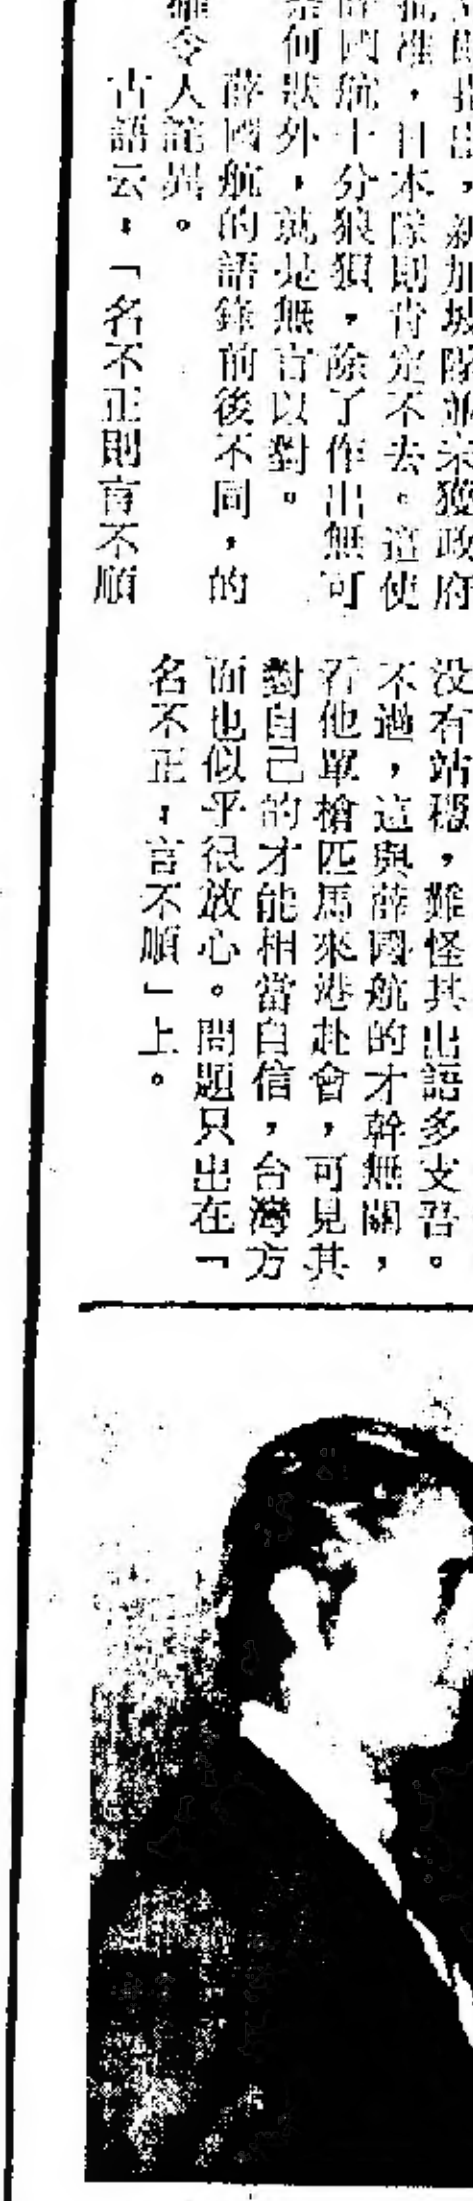 指出，新加坡隊並未獲政府
批准，日本隊則肯定不去。這使
國航十分狼狽，除了作出無可
奈何狀外，就是無言以對。
薛國航的語鋒前後不同，的
確令人詫異。
古語云，「名不正則言不順
没有站穩，難怪其出語多支吾。
不過，這與薛國航的才幹無關，
看他單槍匹馬來港赴會，可見其
對自己的才能相當自信，台灣方
面也似乎很放心。問題只出在「
名不正，言不順」上。